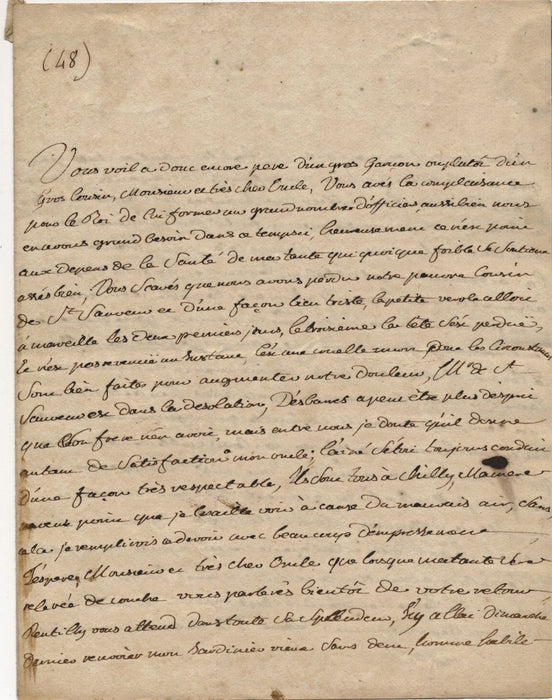 (48)
Vous voila donc encore pere d'un gros Garçon ou plutôt d'un
Gros Cousin, Monsieur et très cher Oncle, Vous avés la complaisance
pour le Roi de lui former un grand nombre d'officiers aussi bien nous
en avons grand besoin dans ce tems ci, heureusement ce n'est point
aux depens de la Santé de ma tante qui quoique foible se soutient
assés bien, Vous Scavés que nous avons perdu notre pauvre Cousin
de St Sauveur et d'une façon bien triste, la petite verole alloit
a merveille les deux premiers jours, le troisième la tête s'est perdue,
et n'est pas revenue un Instant, c'est une cruelle mort, toutes les Circonstances
Sont bien faites pour augmenter notre Douleur, Me de St
Sauveur est dans la desolation, Desbanes a peut être plus d'esprit
que Son frere n'en avoit, mais entre nous je doute qu'il donne
autant de Satisfaction a mon oncle; l'ainé s'étoit toujours conduit
d'une façon très respectable, Ils Sont tous à Chilly, Ma mere
ne veut point que je les aille voir à cause du mauvais air, Sans
cela je remplirois ce devoir avec beaucoup d'empressement
J'espere, Monsieur et très cher Oncle que lorsque ma tante Sera
relevée de couche vous parlerés bientôt de votre retour,
Rentilly vous attend dans toute Sa Splendeur, J'y allai dimanche
dernier renvoier mon Jardinier vieux Sans dent, homme habile